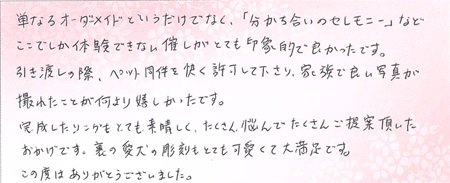 単なるオーダーメイドというだけでなく、「分かち合いのセレモニー」など
ここでしか体験できない催しがとても印象的で良かったです。
引き渡しの際、ペット同伴を快く許可して下さり、家族で良い写真が
撮れたことが何より嬉しかったです。
完成したリングもとても素晴しく、たくさん悩んでたくさんご提案頂いた
おかげです。裏の愛犬の彫刻もとても可愛くて大満足です。
この度はありがとうございました。